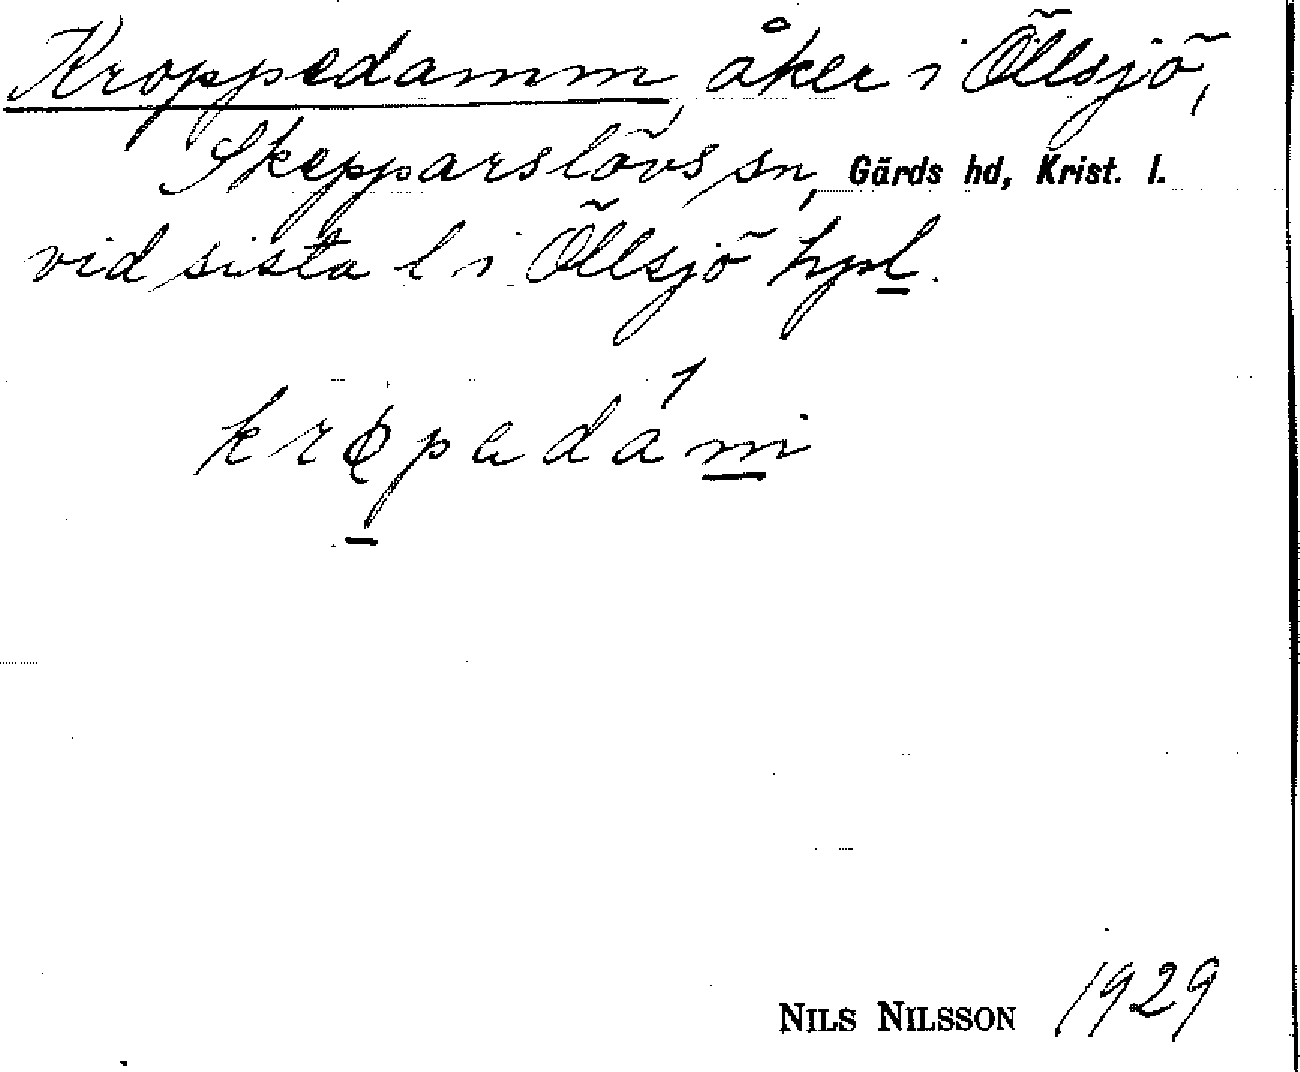 Kroppedamm, åker i Öllsjö,
Skepparslövs sn, Gärds hd, Krist. l.
vid sista l i Öllsjö hpl.
NILS NILSSON 1929